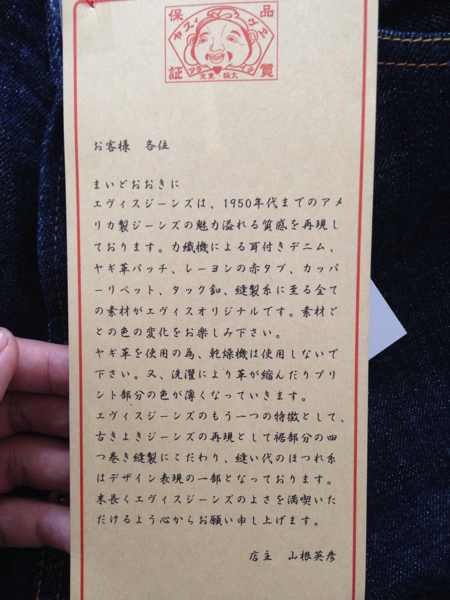 保 品
証 質
お客様 各位
まいどおおきに
エヴィスジーンズは、1950年代までのアメ
リカ製ジーンズの魅力溢れる質感を再現し
ております。力織機による耳付きデニム、
ヤギ革パッチ、レーヨンの赤タブ、カッパ
ーリベット、タック釦、縫製糸に至る全て
の素材がエヴィスオリジナルです。素材ご
との色の変化をお楽しみ下さい。
ヤギ革を使用の為、乾燥機は使用しないで
下さい。又、洗濯により革が縮んだりプリ
ント部分の色が薄くなっていきます。
エヴィスジーンズのもう一つの特徴として、
古きよきジーンズの再現として裾部分の四
つ巻き縫製にこだわり、縫い代のほつれ糸
はデザイン表現の一部となっております。
末長くエヴィスジーンズのよさを満喫いた
だけるよう心からお願い申し上げます。
店主 山根英彦